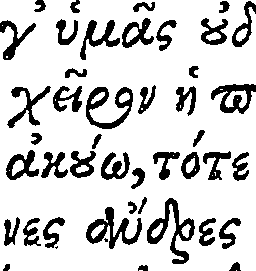 γ' ὑμᾶς ȣδ
χεῖρον ἢ ϖ
ἀκȣ́ω, τότε
νες ἄνδρες